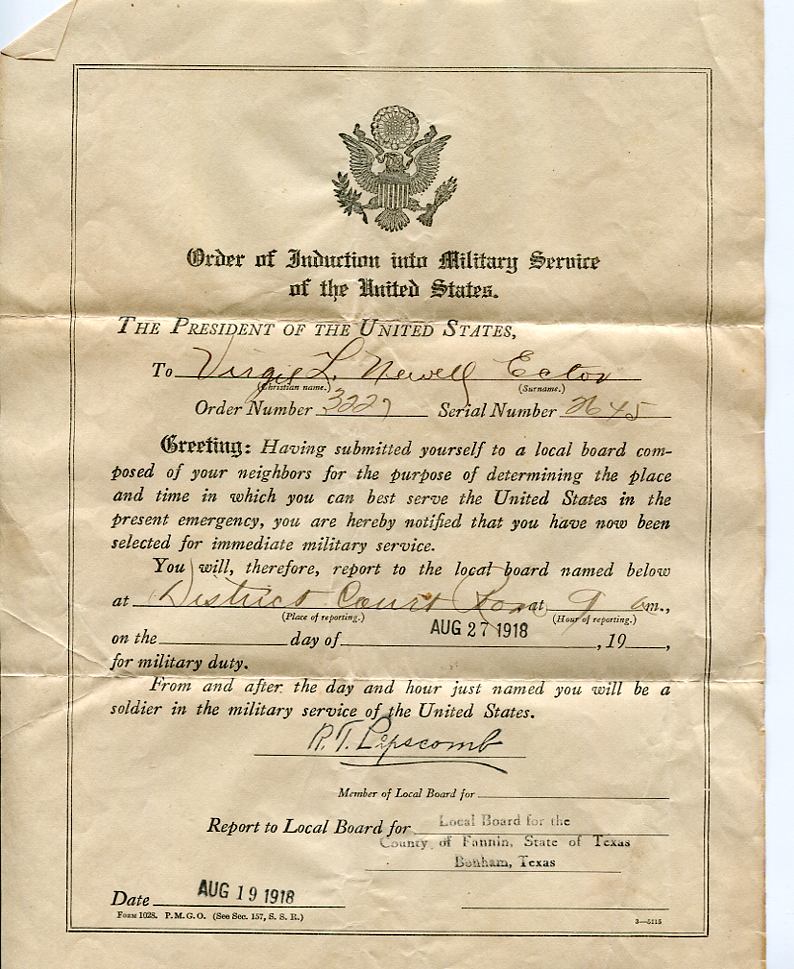 Order of Induction into Military Service
of the United States.
THE PRESIDENT OF THE UNITED STATES,
To Virgil L. Newell Ector
(Christian name.) (Surname.)
Order Number 3227 Serial Number 2645
Greeting: Having submitted yourself to a local board com-
posed of your neighbors for the purpose of determining the place
and time in which you can best serve the United States in the
present emergency, you are hereby notified that you have now been
selected for immediate military service.
You will, therefore, report to the local board named below
at District Court Room at 9 a m.,
(Place of reporting.) (Hour of reporting.)
on the day of AUG 27 1918, 19 ,
for military duty.
From and after the day and hour just named you will be a
soldier in the military service of the United States.
R. T. Lipscomb
Member of Local Board for
Report to Local Board for Local Board for the
County of Fannin, State of Texas
Bonham, Texas
Date AUG 19 1918
Form 1028. P. M. G. O. (See Sec. 157, S. S. R.) 3—5115